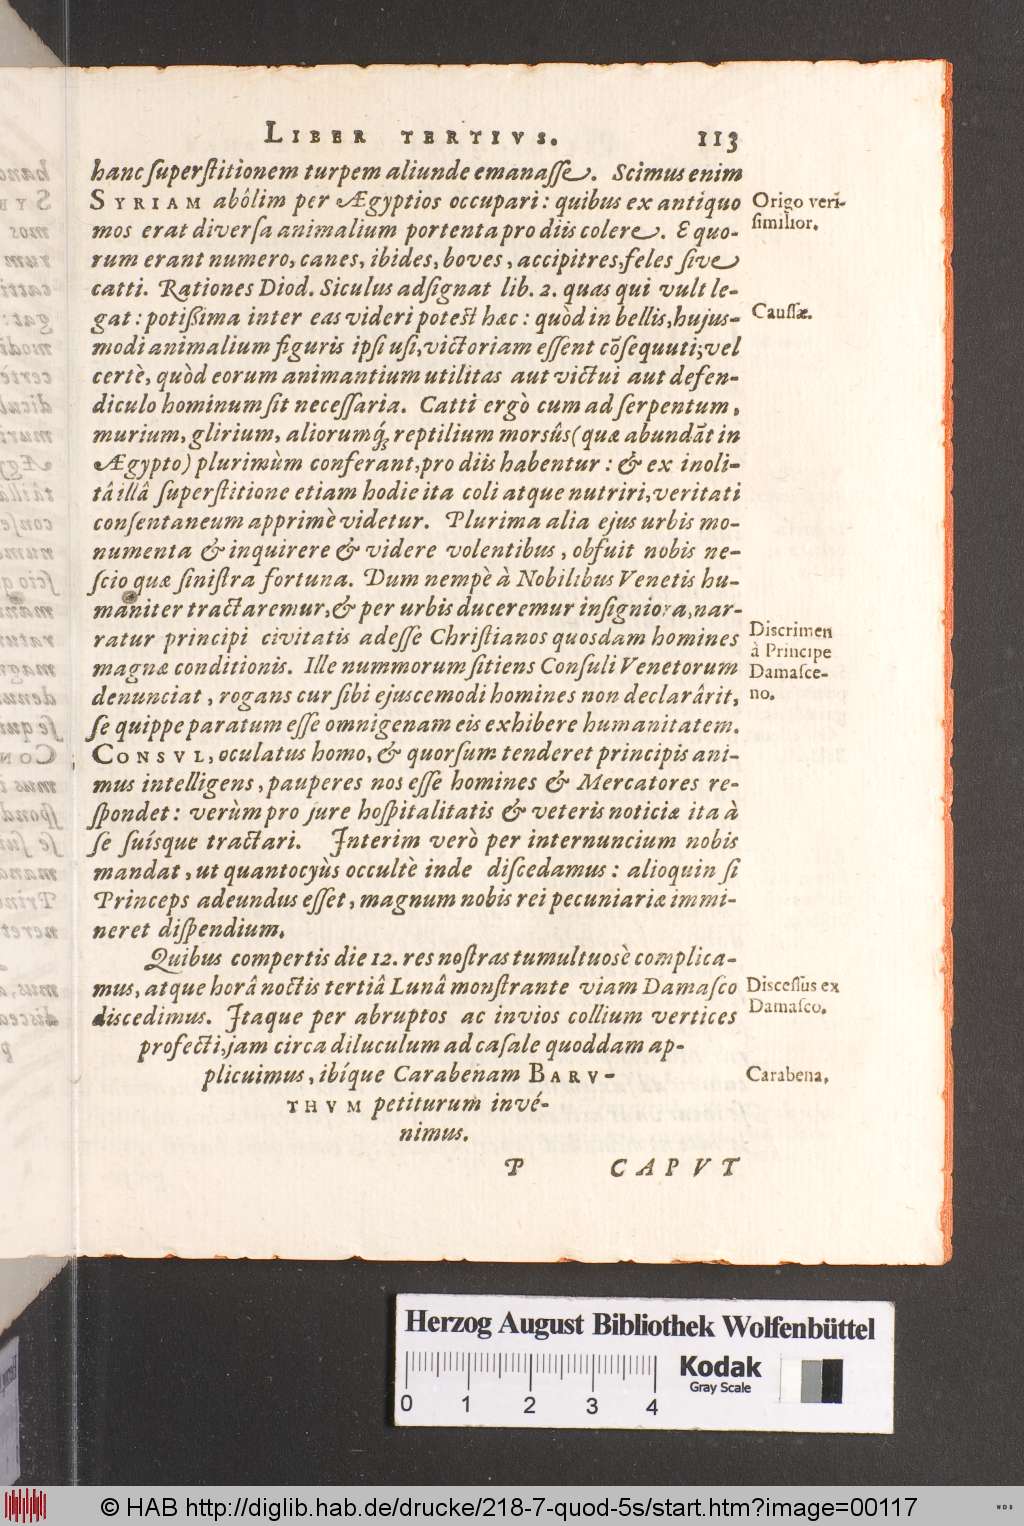 LIBER TERTIVS. 113
hanc ſuperſtitionem turpem aliunde emanaſſe. Scimus enim
SYRIAM abôlim per Ægyptios occupari: quibus ex antiquo
mos erat diverſa animalium portenta pro diis colere. E quo-
rum erant numero, canes, ibides, boves, accipitres, feles ſive
catti. Rationes Diod. Siculus adſignat lib. 2. quas qui vult le-
gat: potißima inter eas videri poteſt hæc: quòd in bellis, hujus-
modi animalium figuris ipſi uſi, victoriam eſſent cõſequuti; vel
certè, quòd eorum animantium utilitas aut victui aut defen-
diculo hominum ſit neceſſaria. Catti ergò cum ad ſerpentum,
murium, glirium, aliorumq́; reptilium morsûs (quæ abundãt in
Ægypto) plurimùm conferant, pro diis habentur: & ex inoli-
tâ illâ ſuperſtitione etiam hodie ita coli atque nutriri, veritati
conſentaneum apprimè videtur. Plurima alia ejus urbis mo-
numenta & inquirere & videre volentibus, obfuit nobis ne-
ſcio quæ ſiniſtra fortuna. Dum nempè à Nobilibus Venetis hu-
maniter tractaremur, & per urbis duceremur inſigniora, nar-
ratur principi civitatis adeſſe Chriſtianos quosdam homines
magnæ conditionis. Ille nummorum ſitiens Conſuli Venetorum
denunciat, rogans cur ſibi ejuscemodi homines non declarârit,
ſe quippe paratum eſſe omnigenam eis exhibere humanitatem.
CONSVL, oculatus homo, & quorſum tenderet principis ani-
mus intelligens, pauperes nos eſſe homines & Mercatores re-
ſpondet: verùm pro jure hoſpitalitatis & veteris noticiæ ita à
ſe ſuísque tractari. Interim verò per internuncium nobis
mandat, ut quantocyùs occultè inde diſcedamus: alioquin ſi
Princeps adeundus eſſet, magnum nobis rei pecuniariæ immi-
neret diſpendium.
Quibus compertis die 12. res noſtras tumultuosè complica-
mus, atque horâ noctis tertiâ Lunâ monſtrante viam Damaſco
diſcedimus. Itaque per abruptos ac invios collium vertices
profecti, jam circa diluculum ad caſale quoddam ap-
plicuimus, ibíque Carabenam BARV-
THVM petiturum invé-
nimus.
P CAPVT
Origo veri-
ſimilior.
Cauſſæ.
Discrimen
à Principe
Damaſce-
no.
Discesſus ex
Damaſco.
Carabena.
Herzog August Bibliothek Wolfenbüttel
Kodak
Gray Scale
0 1 2 3 4
© HAB http://diglib.hab.de/drucke/218-7-quod-5s/start.htm?image=00117